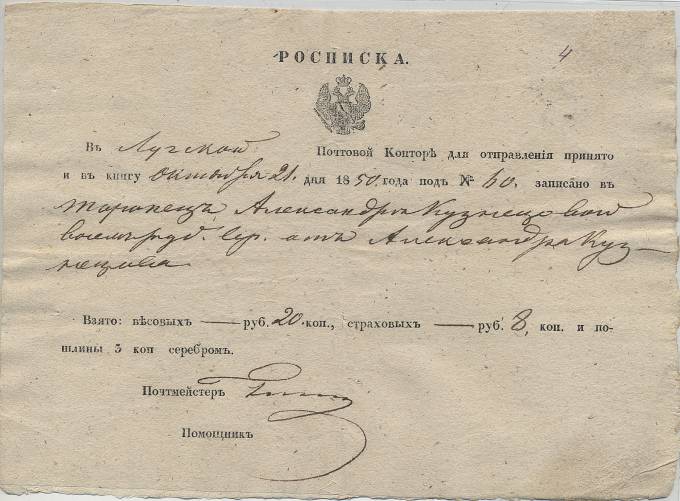 4
РОСПИСКА.
Въ Лугской Почтовой Конторѣ для отправленія принято
и въ книгу Октября 21. дня 1850. года подъ № 60. записано въ
Торопецъ Александрѣ Кузнецовой
восемь руб. сер. отъ Александра Куз-
нецова
Взято: вѣсовыхъ — руб. 20 коп., страховыхъ — руб. 8, коп. и по-
шлины 3 коп серебромъ.
Почтмейстеръ
Помощникъ